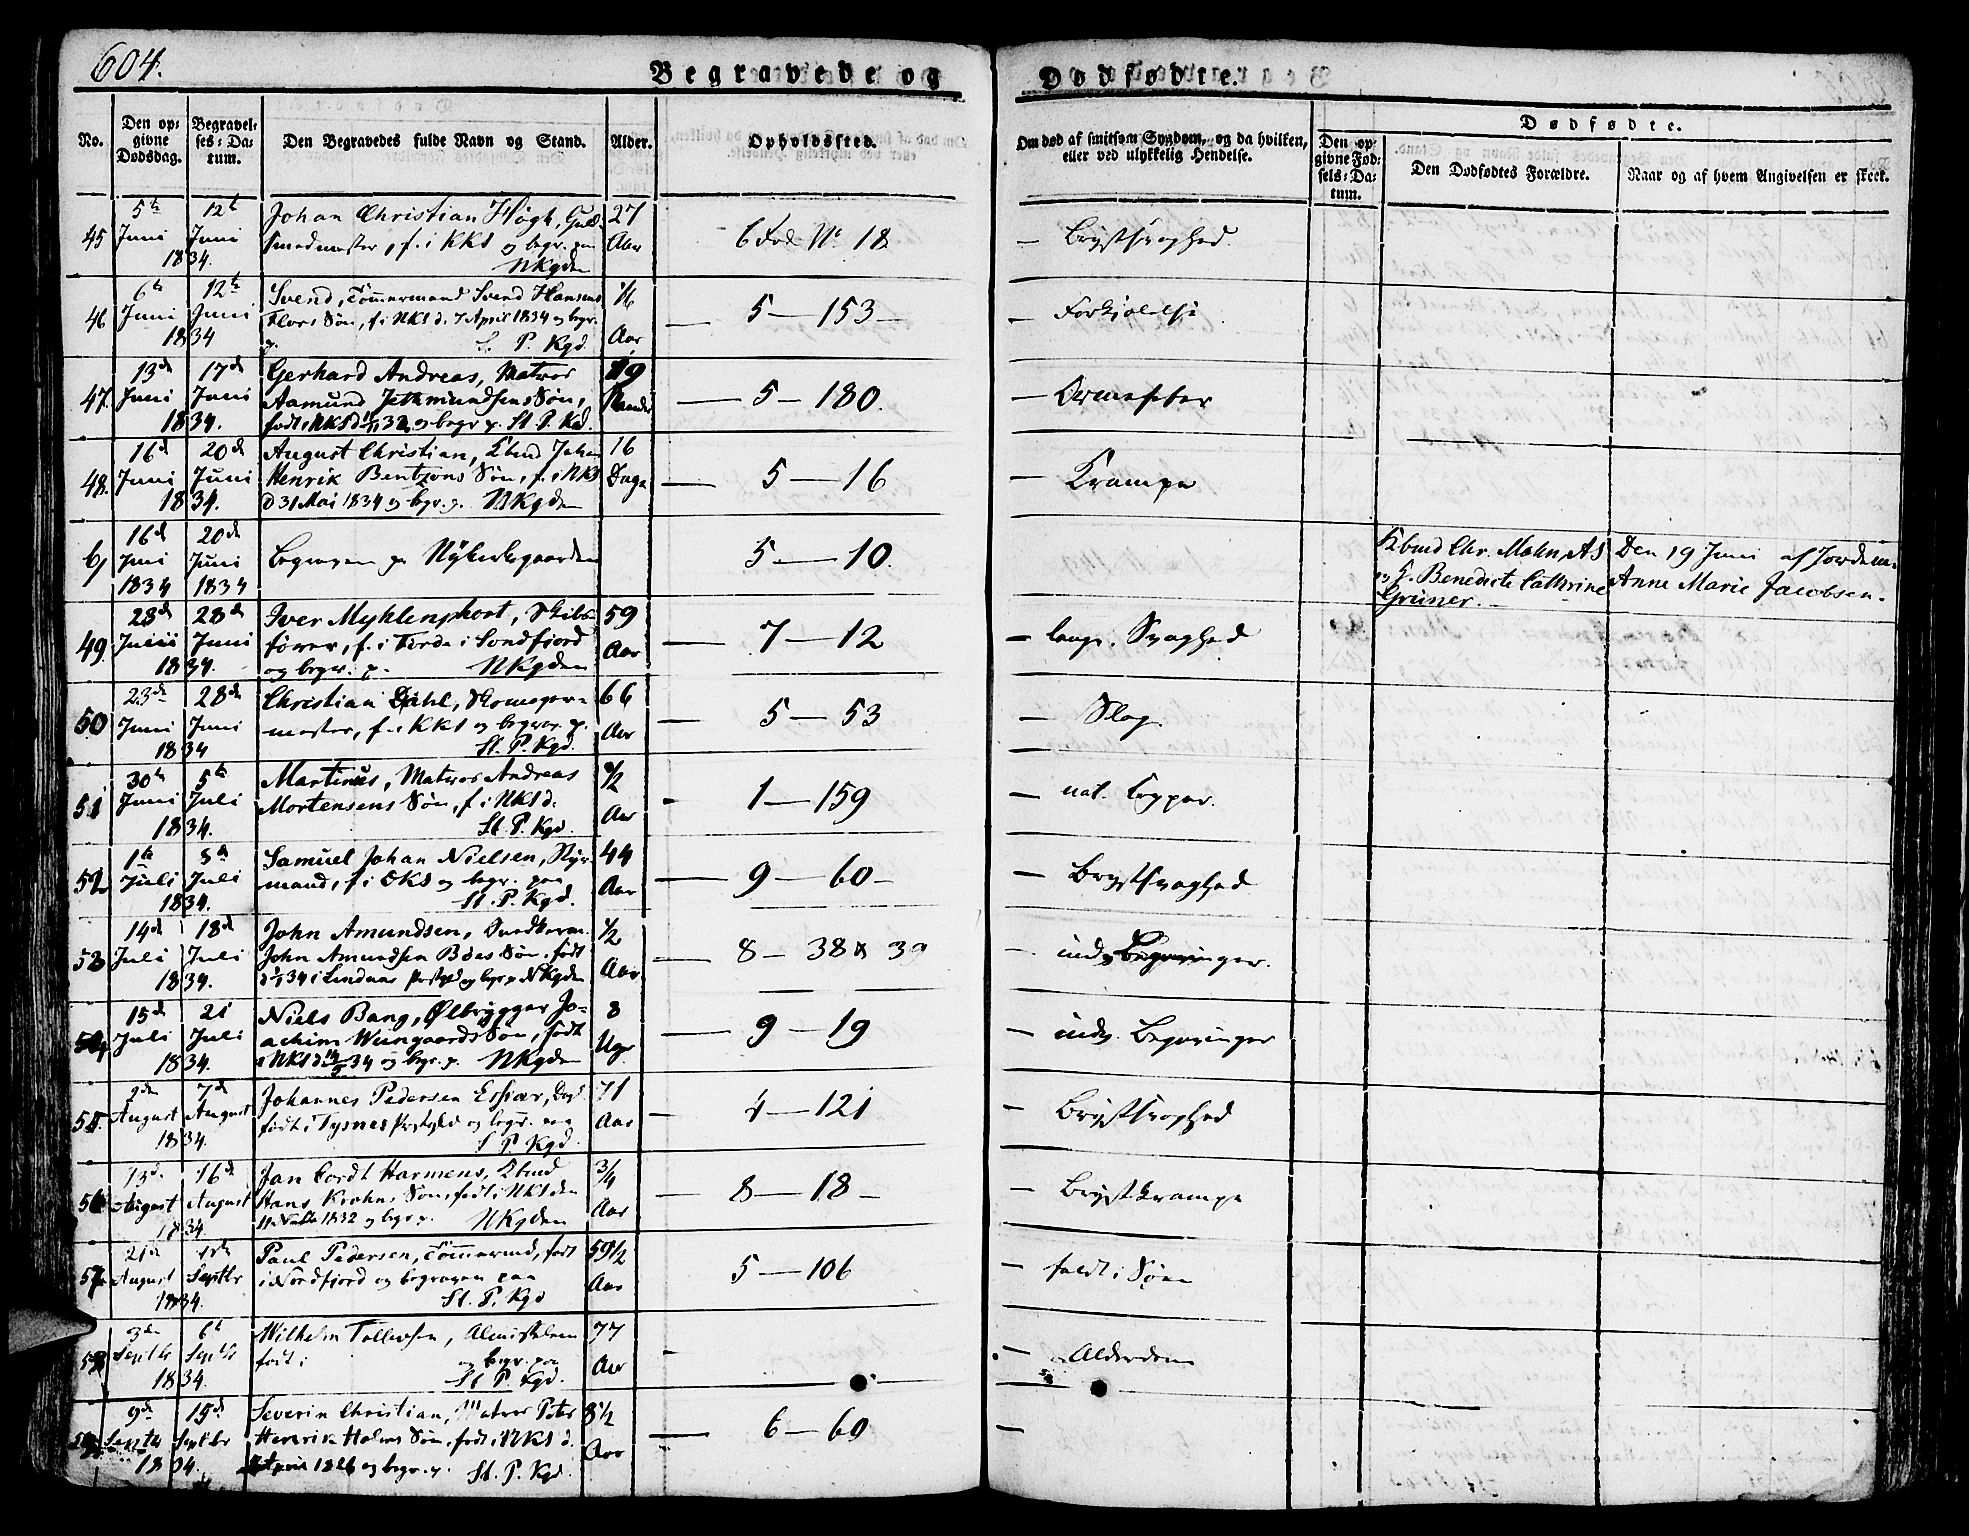 604.
Begravede og Dødfødte.
No.
Den op-
givne
Dødsdag.
Begravel-
ses-Da-
tum.
Den Begravedes fulde Navn og Stand.
Alder.
Opholdssted.
Om død af smitsom Sygdom, og da hvilken,
eller ved ulykkelig Hendelse.
Dødfødte.
Den op-
givne Fød-
sels-Da-
tum.
Den Dødfødtes Forældre.
Naar og af hvem Angivelsen er skeet.
45 5te Juni 12te Juni 1834.
Johan Christian Høgh, Guld-
smedmester, f. i KKS og begr. paa
NKgden
27 Aar
6 Fod. No 18
— Brystsvaghed.
46 6te Juni 12te Juni 1834
Svend, Tømmermand Svend Hansens
Flors Søn, f. i NKS d. 7 April 1834 og begr.
p. St. P. Kgd.
1/6 Aar
— 5 — 153 —
— Forkjølelse
47. 13de Juni 17de Juni 1834.
Gerhard Andreas, Matros
Aamund Søn,
født i NKS d 32 og begr p. St. P. Kgd.
19
— 5 — 180.
— Ormefeber
48. 16de Juni 20de Juni 1834.
August Christian, Kbmd Johan
Henrik Bentzons Søn, f. i NKS
d 31 Mai 1834 og begr. p. NKgden
16 Dage
— 5 — 16
— Krampe
6, 16de Juni 1834 20de Juni 1834
Begraven p Nykirkegaarden
5 — 10.
Kbmd Chr. Mohn, AS
og H. Benedicte Cathrine
Grüner.
Den 19 Juni af Jordem.
Anne Marie Jacobsen.
49. 23de Juni 28de Juni 1834.
Iver Myhlenphort, Skibs-
fører, f. i Førde i Søndfjord
og begr. p. NKgden
59 Aar
— 7 — 12
— langv. Svaghed
50 23de Juni 28de Juni 1834
Christian Dahl, Skomager-
mester, f. i KKS og begrav. p.
St. P. Kgd.
66 Aar
— 5 — 53
— Slag.
51 30te Juni 5te Juli 1834.
Martinus, Matros Andreas
Mortensens Søn, f. i NKS d.
St. P. Kgd.
1/2 Aar
1 — 159
— nat. Kopper.
52 1te Juli 5te Juli 1834.
Samuel Johan Nielsen, Styr-
mand, f. i DKS og begr. paa
St. P. Kgd.
44 Aar
— 9 — 60 —
— Brystsvaghed
53 14de Juli 18de Juli 1834.
John Amundsen,
John Amundsen Bøes Søn. født
34 i Lindaas Prstgd og begr p NKgden
1/2 Aar
— 8 — 38 & 39
— indv. Begivninger.
54 15de Juli 21 Juli 1834.
Niels Bang, Ølbrygger Jo-
achim Wungaards Søn, født
i NKS d. 34 og begr. p. NKgden
8 Uger
— 9 — 19
— indv. Begivninger
55. 2den August 7de August 1834.
Johannes Pedersen Espevær,
født i Tysnes Prstgld og begr. paa
St P. Kgd.
71 Aar
— 4 — 121
— Brystsvaghed
56 13de August 16de August 1834.
Jan Cordt Harmens, Kbmd
Hans Krohns Søn, født i NKS den
1832 og begr p. NKgden
3/4 Aar
— 8 — 18 —
— Brystkrampe
57 21de August 1834. Septbr
Paul Pedersen, Tømmermd, født
i Nordfjord og begraven paa
St. P. Kgd
59 1/2 Aar
5 — 106
— faldt i Søen
58 3de Septbr 6te Septbr 1834.
Wilhelm Tollevsen, Almisselem
født i og begr. paa
St. P. Kgd.
77 Aar
— Alderdom
59 9de Septbr 15de Septbr 1834.
Severin Christian, Matros Peter
Henrik Holms Søn, født i NKS d.
1826 og begr. p. St. P. Kgd.
8 1/2 Aar
— 6 — 60
—